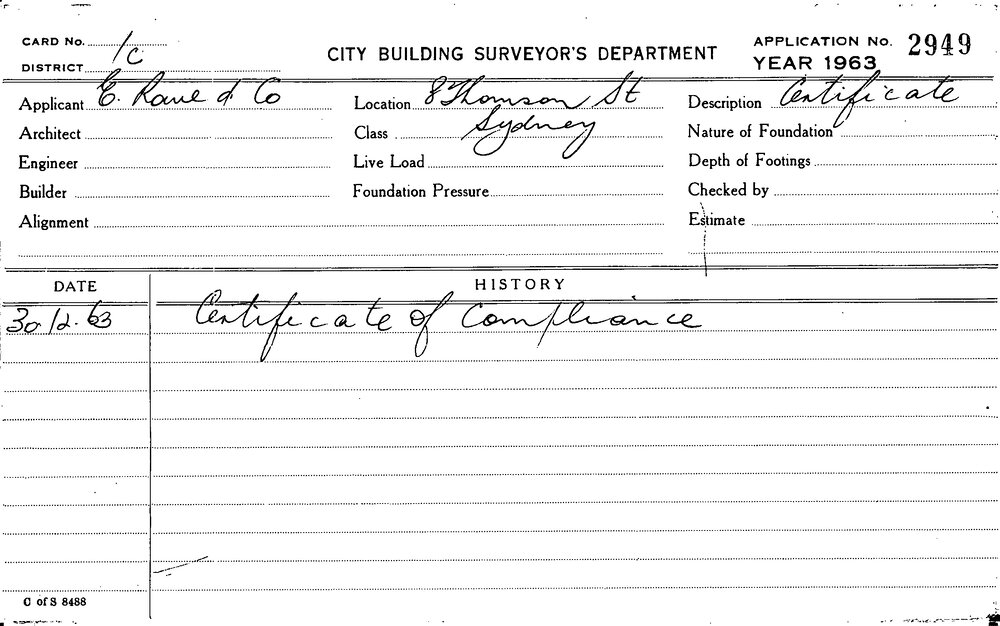 CARD No. 1c
CITY BUILDING SURVEYOR'S DEPARTMENT
APPLICATION No. 2949
DISTRICT
YEAR 1963
Applicant E. Rowe & Co
Location 8 Thomson St
Description Certificate
Architect
Class Sydney
Nature of Foundation
Engineer
Live Load
Depth of Footings
Builder
Foundation Pressure
Checked by
Alignment
Estimate
DATE
HISTORY
30.12.63 Certificate of Compliance
C of S 8488